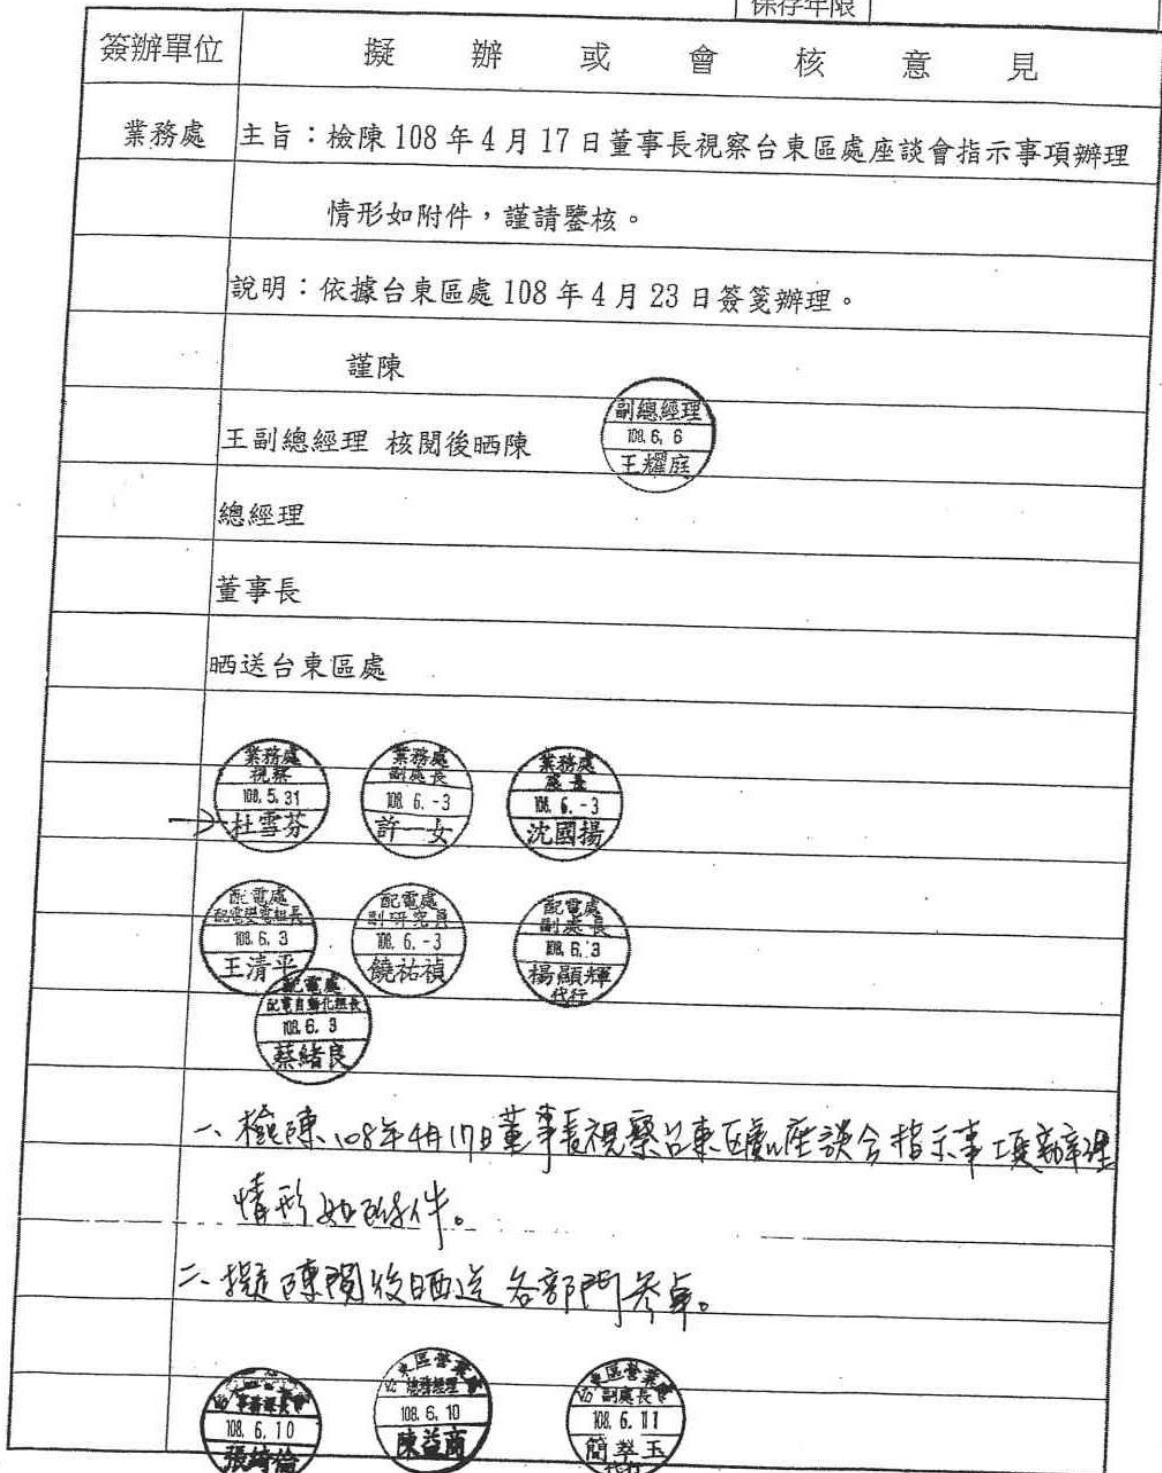 保存年限
簽辦單位 擬辦或會核意見
業務處 主旨：檢陳 108 年 4 月 17 日董事長視察台東區處座談會指示事項辦理
情形如附件，謹請鑒核。
說明：依據台東區處 108 年 4 月 23 日簽箋辦理。
謹陳
王副總經理 核閱後晒陳
副總經理
108. 6. 6
王耀庭
總經理
董事長
晒送台東區處
業務處
視察
108. 5. 31
杜雪芬
業務處
副處長
108. 6. -3
許一女
業務處
處長
108. 6. -3
沈國揚
配電處
配電變電組長
108. 6. 3
王清平
配電處
副研究員
108. 6. -3
饒祐禎
配電處
副處長
108. 6. 3
楊顯輝
代行
配電處
配電自動化組長
108. 6. 3
蔡緒良
一、檢陳108年4月17日董事長視察台東區處座談會指示事項辦理
情形如附件。
二、擬陳閱後晒送各部門參卓。
108. 6. 10
張綺倫
東區營業處
108. 6. 10
陳益商
東區營業處
副處長
108. 6. 11
簡翠玉
代行